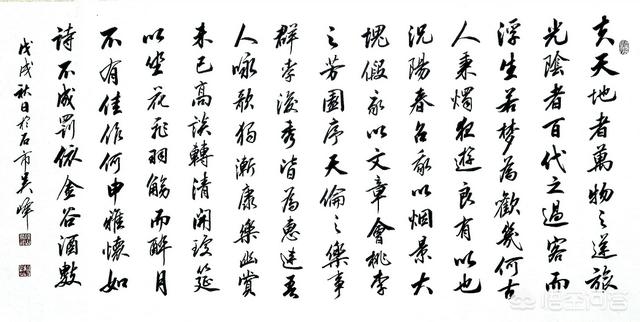 夫天地者萬物之逆旅
光陰者百代之過客而
浮生若夢為歡幾何古
人秉燭夜遊良有以也
況陽春召我以烟景大
塊假我以文章會桃李
之芳園序天倫之樂事
群季俊秀皆為惠連吾
人咏歌獨慚康樂幽賞
未已高談轉清開瓊筵
以坐花飛羽觴而醉月
不有佳作何申雅懷如
詩不成罰依金谷酒數
戊戌秋日於石市吳峰
悟空问答